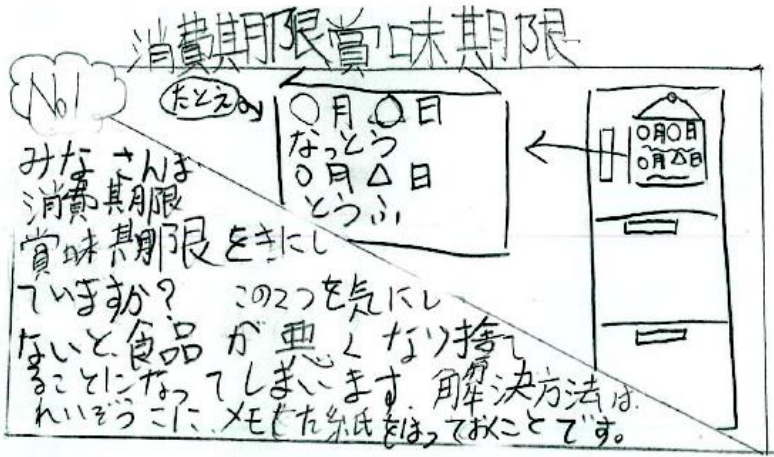 消費期限賞味期限
No1
たとえ
○月○日
なっとう
○月△日
とうふ
○月○日
○月△日
みなさんは
消費期限
賞味期限をきにし
ていますか? この2つを気にし
ないと食品が悪くなり捨て
ることになってしまいます。解決方法は
れいぞうこに、メモした紙をはっておくことです。